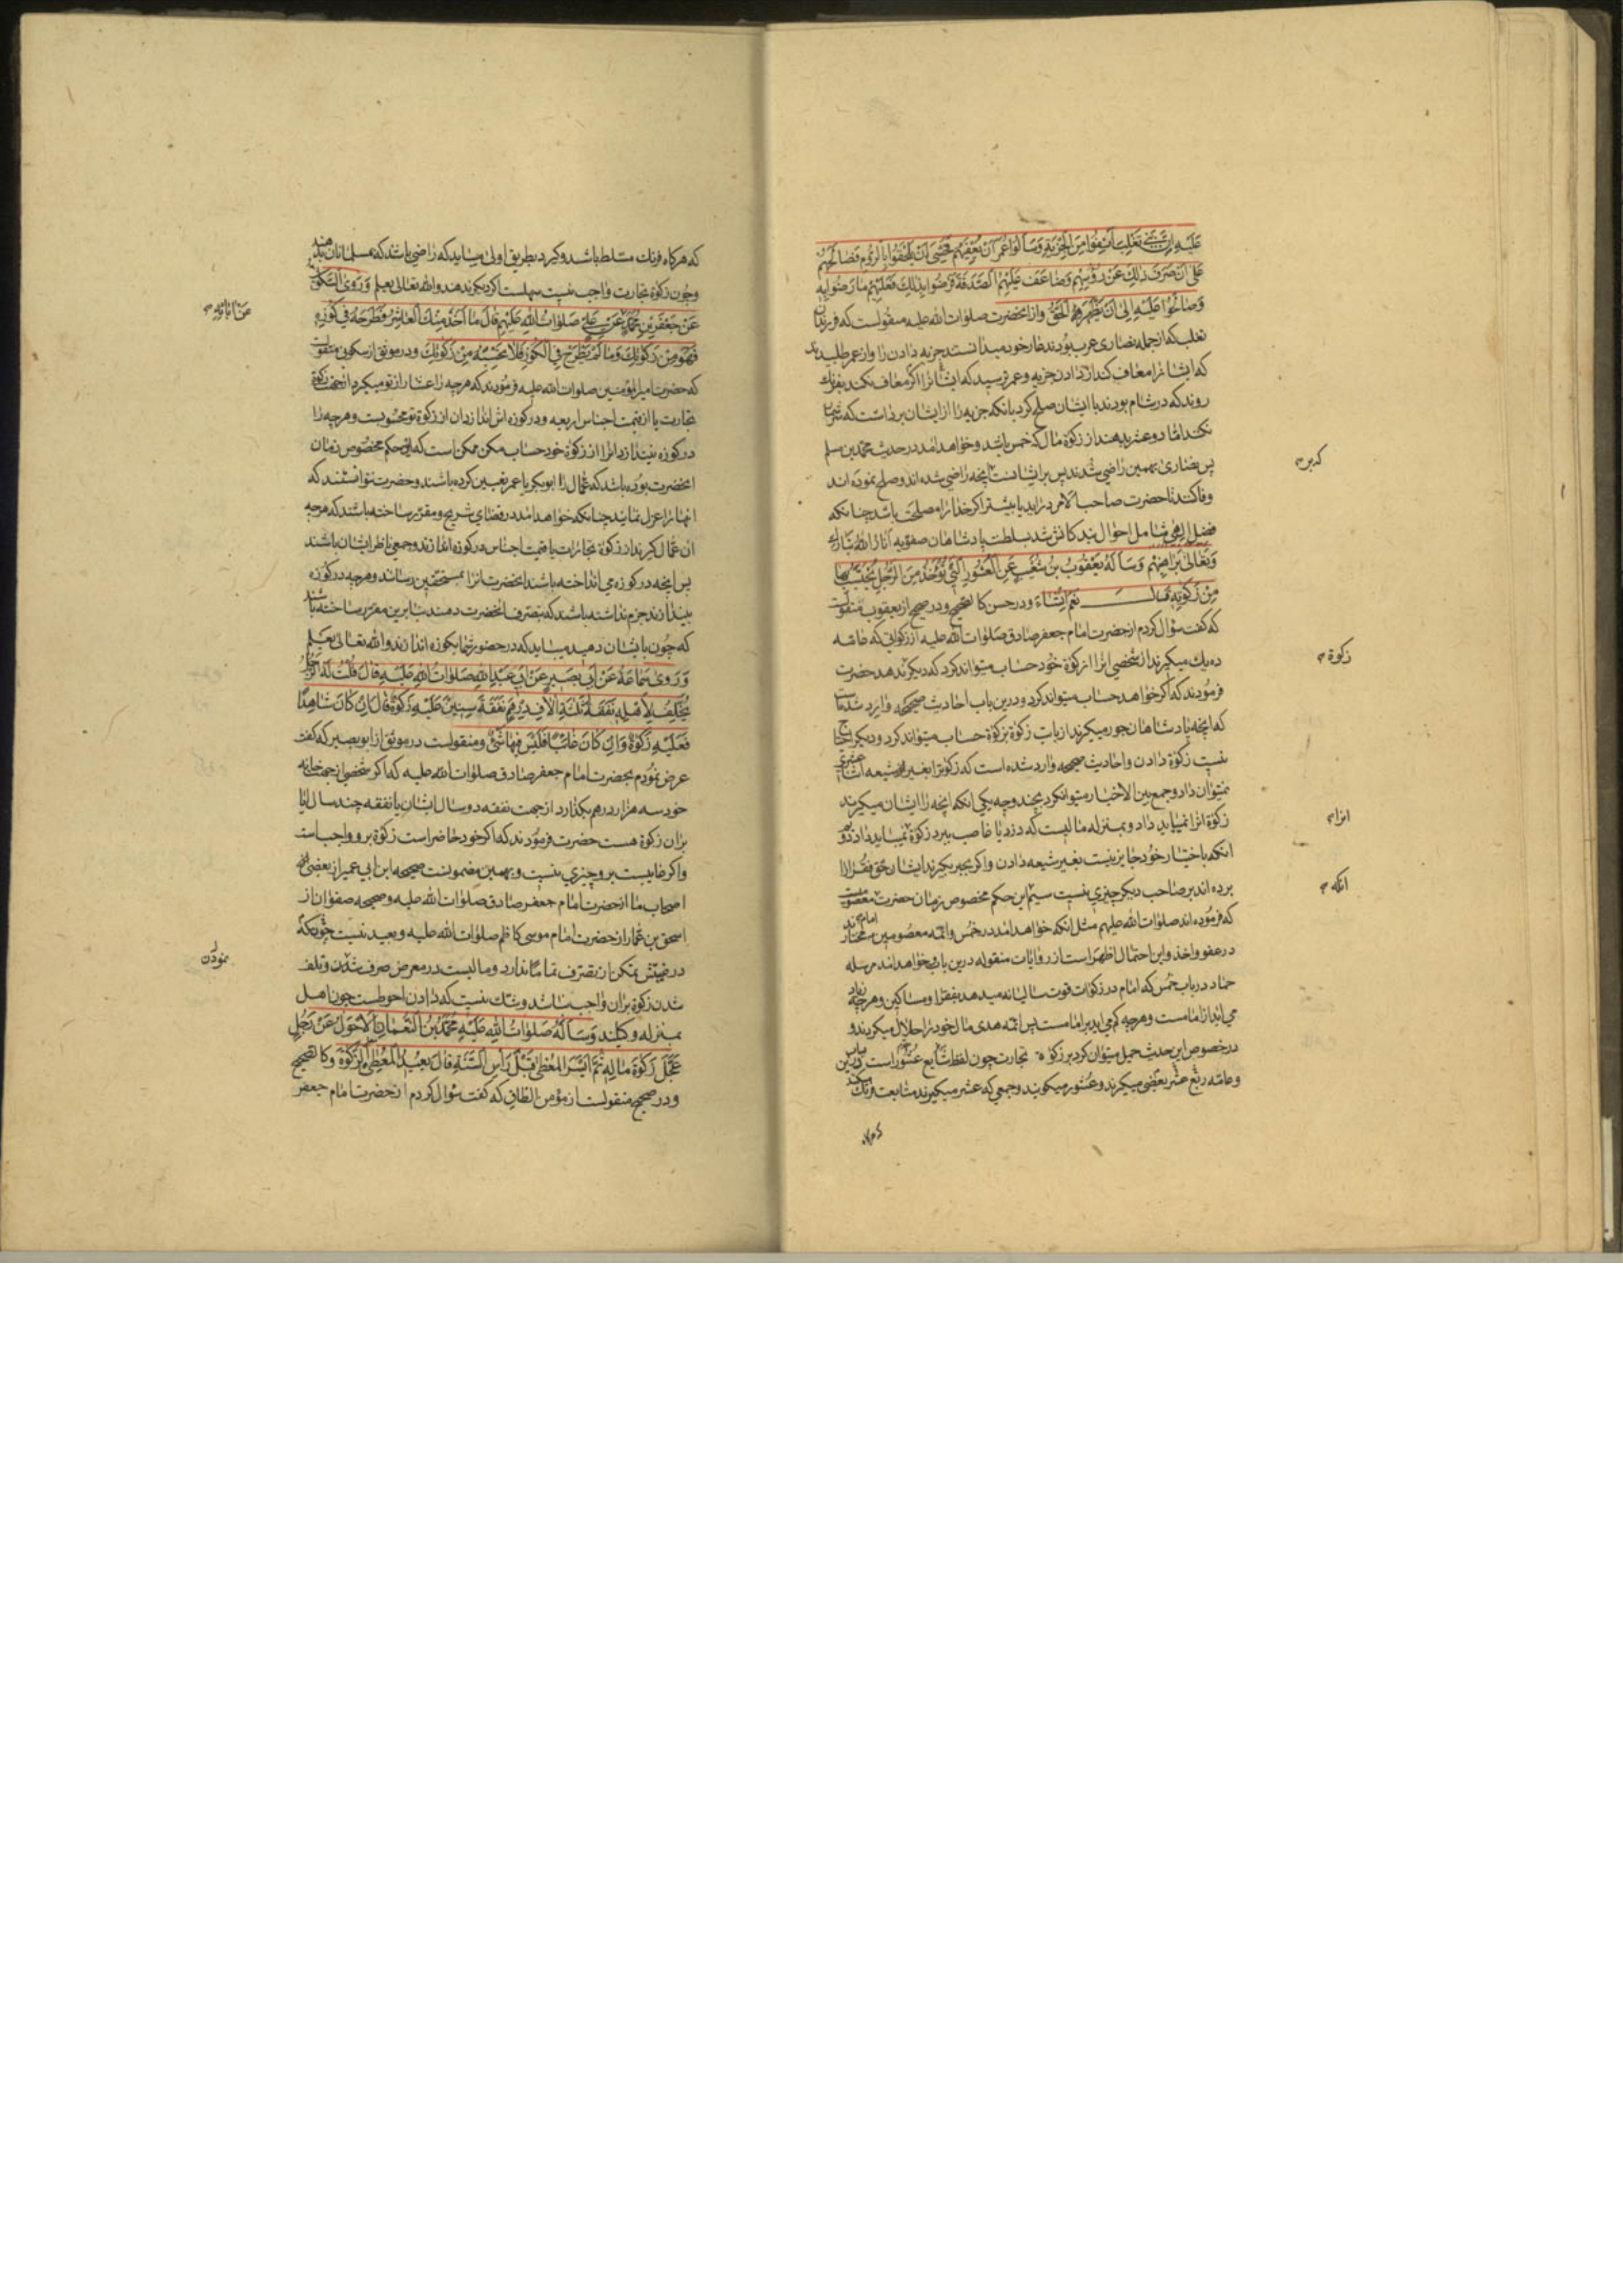 عَلَيْهِ اِنَّ بَنِي تَغْلِبَ اَنِفُوا مِنَ الْجِزْيَةِ وَسَاَلُوا عُمَرَ اَنْ يُعْفِيَهُمْ فَخَشِيَ اَنْ يَلْحَقُوا بِالرُّومِ فَصَالَحَهُمْ
عَلى اَنْ صَرَفَ ذٰلِكَ عَنْ رُؤُسِهِمْ وَضَاعَفَ عَلَيْهِمُ الصَّدَقَةَ فَرَضُوا بِذٰلِكَ فَعَلَيْهِمْ مَا رَضُوا بِهِ
وَصَالَحُوا عَلَيْهِ اِلى اَنْ يَظْهَرَ الْحَقُّ و از انحضرت صلوات الله علیه منقولست که فرزندان
تغلب که از جمله نصارى عرب بودند عار خود میدانستند جزیه دادن را و از عمر طلبیدند
که ایشانرا معاف کند از دادن جزیه و عمر ترسید که ایشانرا اکر معاف نکند بفرنك
روند که در شام بودند با ایشان صلح کرد بانکه جزیه را از ایشان برداشت که
نکند اما دو عشر بدهند از زکوة مال که خمس باشد و خواهد امد در حدیث محمد بن مسلم
پس نصارى بهمین راضی شدند پس بر ایشانست انچه راضی شده اند و صلح نموده اند
وفا کنند تا حضرت صاحب الامر در اید یا بیشتر اکر خدا را مصلحت باشد چنانکه
فضل الهی شامل احوال شد بسلطنت پادشاهان صفویه انار الله تبارك
وَتَعَالى بَرَاهِينَهُمْ وَسَاَلَهُ يَعْقُوبُ بْنُ شُعَيْبٍ عَنِ الْعُشُورِ الَّتِي تُؤْخَذُ مِنَ الرَّجُلِ يَحْتَسِبُ بِهَا
مِنْ زَكٰوتِهِ قَالَ نَعَمْ اِنْ شَاءَ و در حسن کالصحیح و در صحیح از یعقوب منقولست
که کفت سؤال کردم از حضرت امام جعفر صادق صلوات الله علیه از زکوتی که عامه
ده یك میکیرند از شخصی انرا از زکوة خود حساب میتواند کرد که دیکر ندهد حضرت
فرمودند که اکر خواهد حساب میتواند کرد و درین باب احادیث صحیحه وارد شده است
که انچه پادشاهان جور میکیرند از بابت زکوة بزکوة حساب میتواند کرد و دیکر احتیاج
نیست زکوة دادن و احادیث صحیحه وارد شده است که زکوة را بغیر شیعه اثنا عشری
نمیتوان داد و جمع بین الاخبار میتوان کرد بچند وجه یکی انکه انچه را ایشان میکیرند
زکوة انرا نمیباید داد و بمنزله مالیست که دزد یا غاصب ببرد زکوة نمیباید داد دوم
انکه باختیار خود جایز نیست بغیر شیعه دادن و اکر بجبر بکیرند ایشان حق فقرا را
برده اند بر صاحب دیکر چیزی نیست سیم این حکم مخصوص زمان حضرت معصومست
که فرموده اند صلوات الله علیهم مثل انکه خواهد امد در خمس و ائمه معصومین مختارند
در عفو و اخذ و این احتمال اظهر است از روایات منقوله درین باب خواهد امد مرسله
حماد در باب خمس که امام در زکوات قوت سالیانه میدهد بفقرا و مساکین و هر چه زیاد
می اید از امامست و هر چه کم می اید بر امامست پس ائمه هدى مال خود را حلال میکردند و
در خصوص این حدیث حمل میتوان کرد بر زکوة تجارت چون لفظ شایع عشور است
و عامه ربع عشر بعضی میکیرند و عشور میکویند و جمعی که عشر میکیرند متابعت فرنك
زکوة
انرا
انکه
که هرکاه فرنك مسلط باشد و کیرد بطریق اولى میباید که راضی باشد که مسلمانان بدهند
و چون زکوة تجارت واجب نیست سهلست اکر دیکر ندهد والله تعالى یعلم وَرَوَى السَّكُونِيُّ
عَنْ جَعْفَرِ بْنِ مُحَمَّدٍ عَنْ عَلِيٍّ صَلَوَاتُ اللهِ عَلَيْهِمْ قَالَ مَا اَخَذَ مِنْكَ الْعَاشِرُ فَطَرَحَهُ فِي كُوزِهِ
فَهُوَ مِنْ زَكٰوتِكَ وَمَا لَمْ يَطْرَحْ فِي الْكُوزِ فَلَا تَحْتَسِبْهُ مِنْ زَكٰوتِكَ و در موثق از سکونی منقولست
که حضرت امیر المؤمنین صلوات الله علیه فرمودند که هر چه را عشار از تو میکیرد از جهت زکوة
تجارت یا از قیمت اجناس اربعه و در کوزه اش اندازد ان از زکوة تو محسوبست و هر چه را
در کوزه نیندازد انرا از زکوة خود حساب مکن ممکن است که این حکم مخصوص زمان
انحضرت بوده باشد که عمال را ابوبکر یا عمر تعیین کرده باشند و حضرت نتوانستند که
انها را عزل نمایند چنانکه خواهد امد در قضای شریح و مقرر ساخته باشند که هرچه
ان عمال کیرند از زکوة تجارات یا قیمت اجناس در کوزه اندازند و جمعی ناظر ایشان باشند
پس انچه در کوزه می انداخته باشند انحضرت انرا بمستحقین رسانند و هرچه در کوزه
نیندازند جزم نداشته باشند که بتصرف انحضرت دهند بنابرین مقرر ساخته باشند
که چون بایشان دهید میباید که در حضور شما بکوزه اندازند والله تعالى یعلم
وَرَوى سَمَاعَةُ عَنْ اَبِي بَصِيرٍ عَنْ اَبِي عَبْدِ اللهِ صَلَوَاتُ اللهِ عَلَيْهِ قَالَ قُلْتُ لَهُ الرَّجُلُ
يُخَلِّفُ لِاَهْلِهِ نَفَقَةَ ثَلٰثَةِ اٰلَافِ دِرْهَمٍ نَفَقَةَ سِنِينَ عَلَيْهِ زَكٰوةٌ قَالَ اِنْ كَانَ شَاهِدًا
فَعَلَيْهِ زَكٰوةٌ وَاِنْ كَانَ غَائِبًا فَلَيْسَ فِيهَا شَيْءٌ و منقولست در موثق از ابو بصیر که کفت
عرض نمودم بحضرت امام جعفر صادق صلوات الله علیه که اکر شخصی از جهت خانه
خود سه هزار درهم بکذارد از جهت نفقه دو سال ایشان یا نفقه چند سال ایا
بران زکوة هست حضرت فرمودند که اکر خود حاضر است زکوة برو واجب است
و اکر غایبست برو چیزی نیست و بهمین مضمونست صحیحه ابن ابی عمیر از بعضی
اصحاب ما از حضرت امام جعفر صادق صلوات الله علیه و صحیحه صفوان از
اسحق بن عمار از حضرت امام موسى کاظم صلوات الله علیه و بعید نیست چونکه
در غیبتش تمکن از تصرف تماما ندارد و مالیست در معرض صرف شدن و تلف
شدن زکوة بران واجب نباشد و شك نیست که دادن احوطست چون اهل
بمنزله وکیلند وَسَاَلَهُ صَلَوَاتُ اللهِ عَلَيْهِ مُحَمَّدُ بْنُ النُّعْمَانِ الْاَحْوَلُ عَنْ رَجُلٍ
عَجَّلَ زَكٰوةَ مَالِهِ ثُمَّ اَيْسَرَ الْمُعْطى قَبْلَ رَاْسِ السَّنَةِ قَالَ يُعِيدُ الْمُعْطِي الزَّكٰوةَ و کالصحیح
و در صحیح منقولست از مؤمن الطاق که کفت سؤال کردم از حضرت امام جعفر
عن ابائه